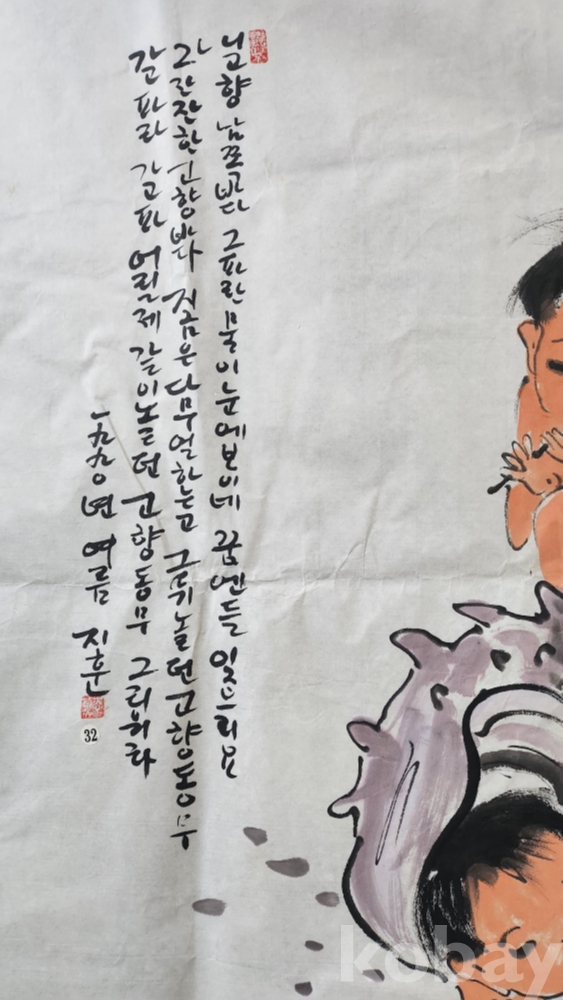 내고향 남쪽바다 그파란 물이눈에보이네 꿈엔들 잊으리요
그 잔잔한고향바다 지금은다무얼하는고 그뛰놀던고향동무
가고파라 가고파 어릴제 같이놀던 고향동무 그리워라
一九九〇년 여름 지훈
32
kobay